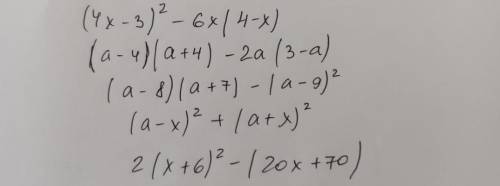 (4x-3)² - 6x(4-x)
(a-4)(a+4) - 2a(3-a)
(a-8)(a+7) - (a-9)²
(a-x)² + (a+x)²
2(x+6)² - (20x+70)